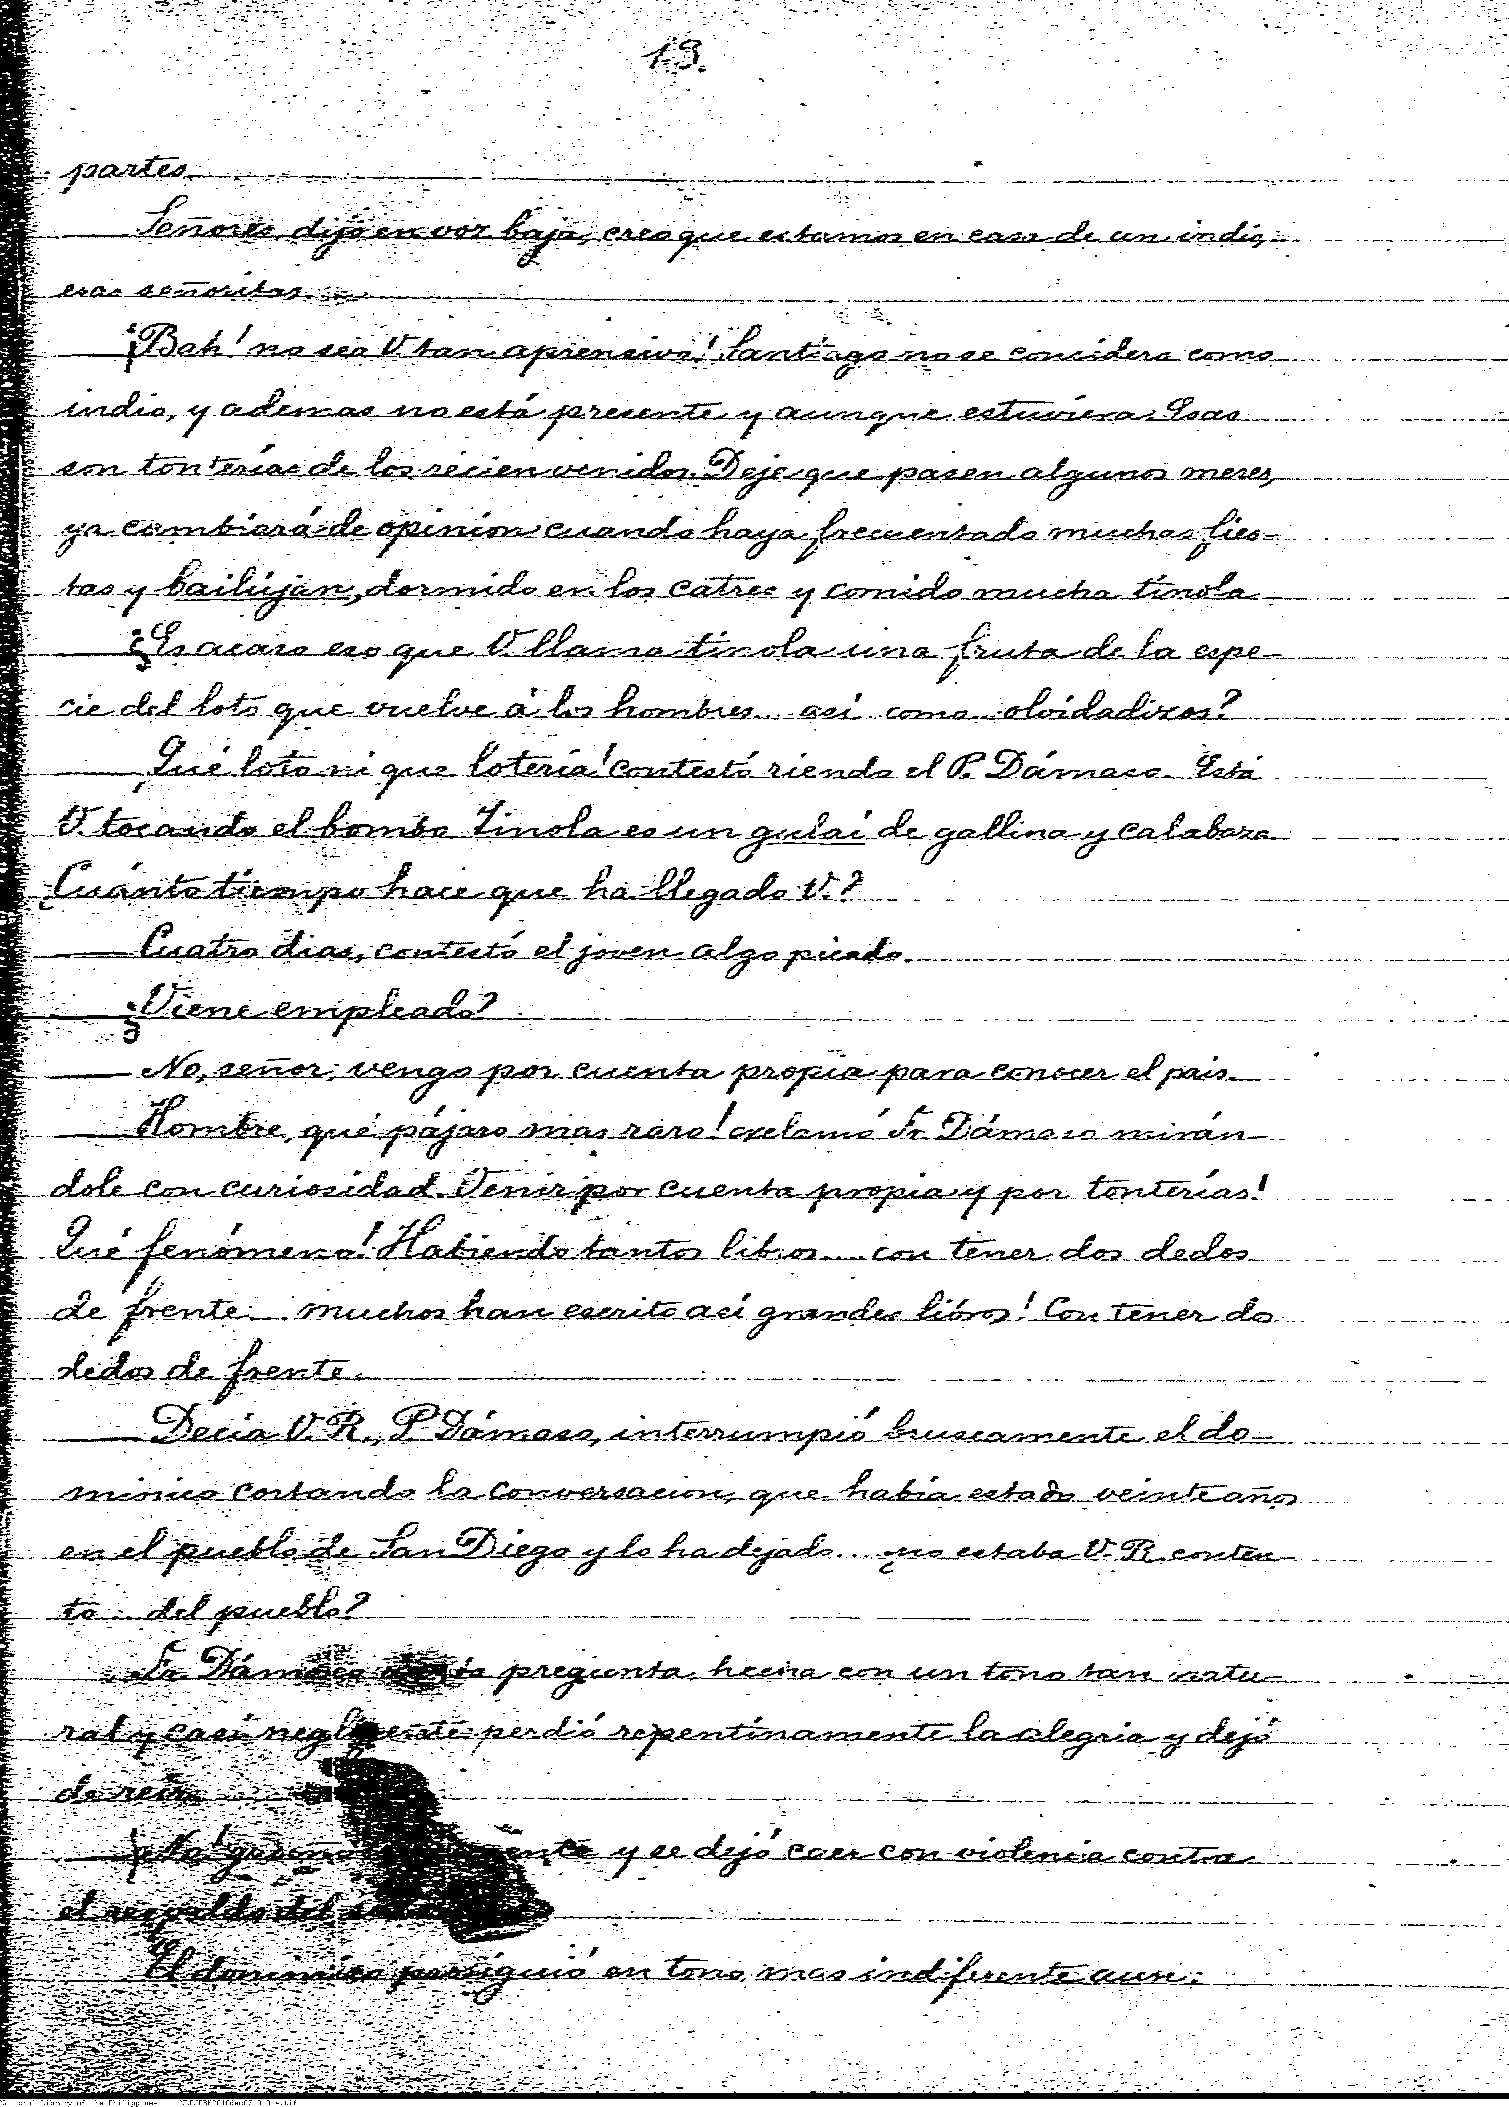 13.
partes.
— Señores, dijo en voz baja, creo que estamos en casa de un indio,
esas señoritas.
— ¡Bah! no sea V. tan aprensivo! Santiago no se considera como
indio, y ademas no está presente y aunque estuviera. Esas
son tonterías de los recien venidos. Deje que pasen algunos meses,
ya cambiará de opinion cuando haya frecuentado muchas fies-
tas y bailújan, dormido en los catres y comido mucha tinola
— ¿Es acaso eso que V. llama tinola una fruta de la espe-
cie del loto que vuelve á los hombres... así como... olvidadizos?
— Qué loto ni que lotería! contestó riendo el P. Dámaso. Está
V. tocando el bombo Tinola es un gulai de gallina y calabaza.
¿Cuánto tiempo hace que ha llegado V.?
— Cuatro dias, contestó el joven algo picado.
— ¿Viene empleado?
— No, señor; vengo por cuenta propia para conocer el pais.
— Hombre, qué pájaro mas raro! exclamó Fr. Dámaso mirán-
dole con curiosidad. Venir por cuenta propia y por tonterías!
Qué fenómeno! Habiendo tantos libros... con tener dos dedos
de frente... muchos han escrito así grandes libros! Con tener dos
dedos de frente.
— Decia V. R., P. Dámaso, interrumpió bruscamente el do-
minico cortando la conversacion, que habia estado veinte años
en el pueblo de San Diego y lo ha dejado... ¿no estaba V. R. conten-
to... del pueblo?
Fr. Dámaso pregunta hecha con un tono tan natu-
ral y casi negligente perdió repentinamente la alegria y dejó
de reir.
— ¡No! y se dejó caer con violencia contra
el respaldo del
El dominico prosiguió en tono mas indiferente aun: